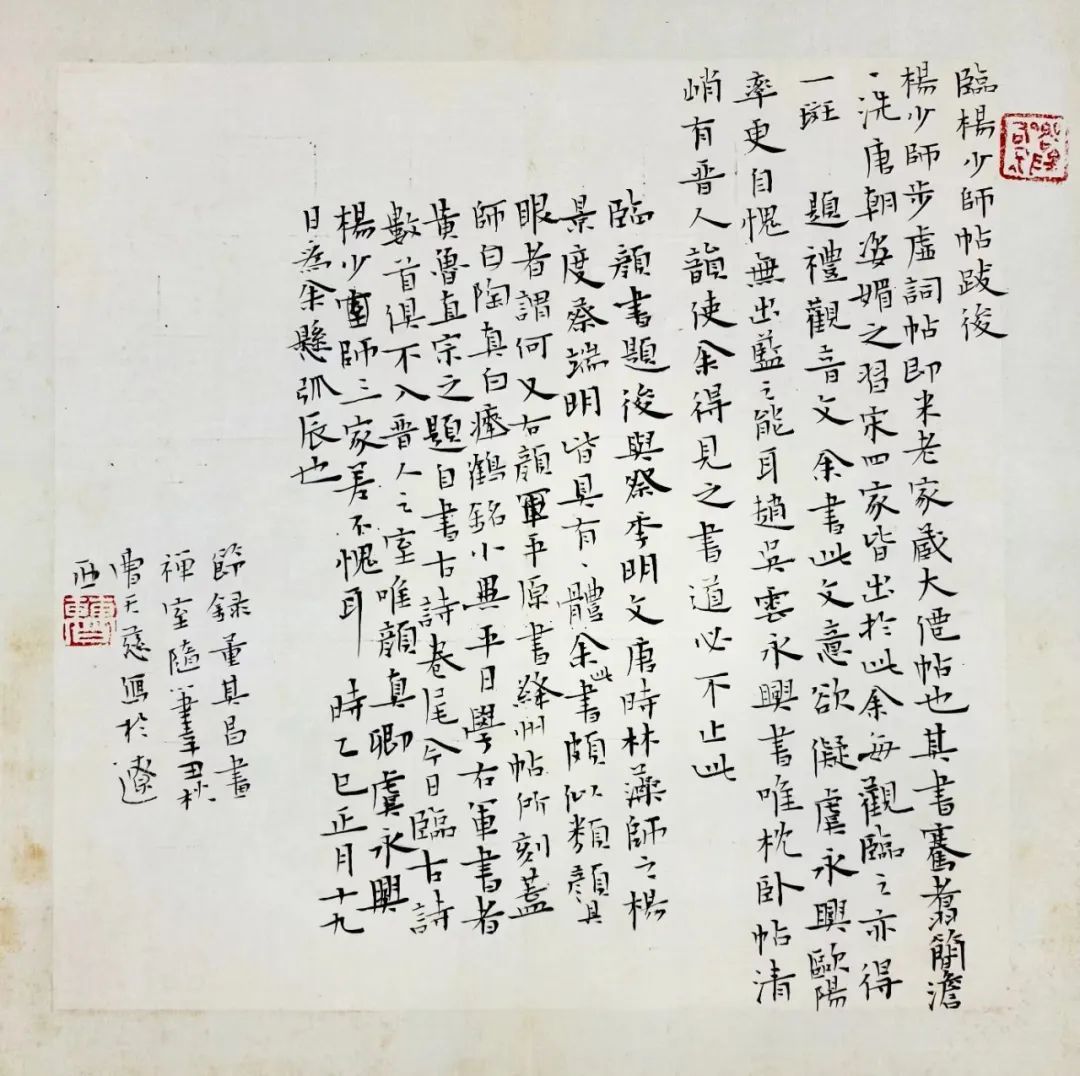 臨楊少師帖跋後
楊少師步虛詞帖即米老家藏大僊帖也其書騫翥簡澹
一洗唐朝姿媚之習宋四家皆出於此余每觀臨之亦得
一斑　題禮觀音文余書此文意欲儗虞永興歐陽
率更自愧無出藍之能耳趙吳雲永興書唯枕卧帖清
峭有晋人韻使余得見之書道必不止此
臨顏書題後與祭季明文唐時林藻師之楊
景度蔡端明皆具有一體余此書頗似類顏具
眼者謂何　又右顏軍平原書絳州帖所刻蓋
師白陶真白瘞鶴銘小異平日學右軍書者
黄魯直宗之　題自書古詩卷尾今日臨古詩
數首俱不入晋人之室唯顏真卿虞永興
楊少師三家差不愧耳　時乙巳正月十九
日為余懸弧辰也
節録董其昌畫
禪室隨筆辛丑秋
曹天慈寫於遼
西